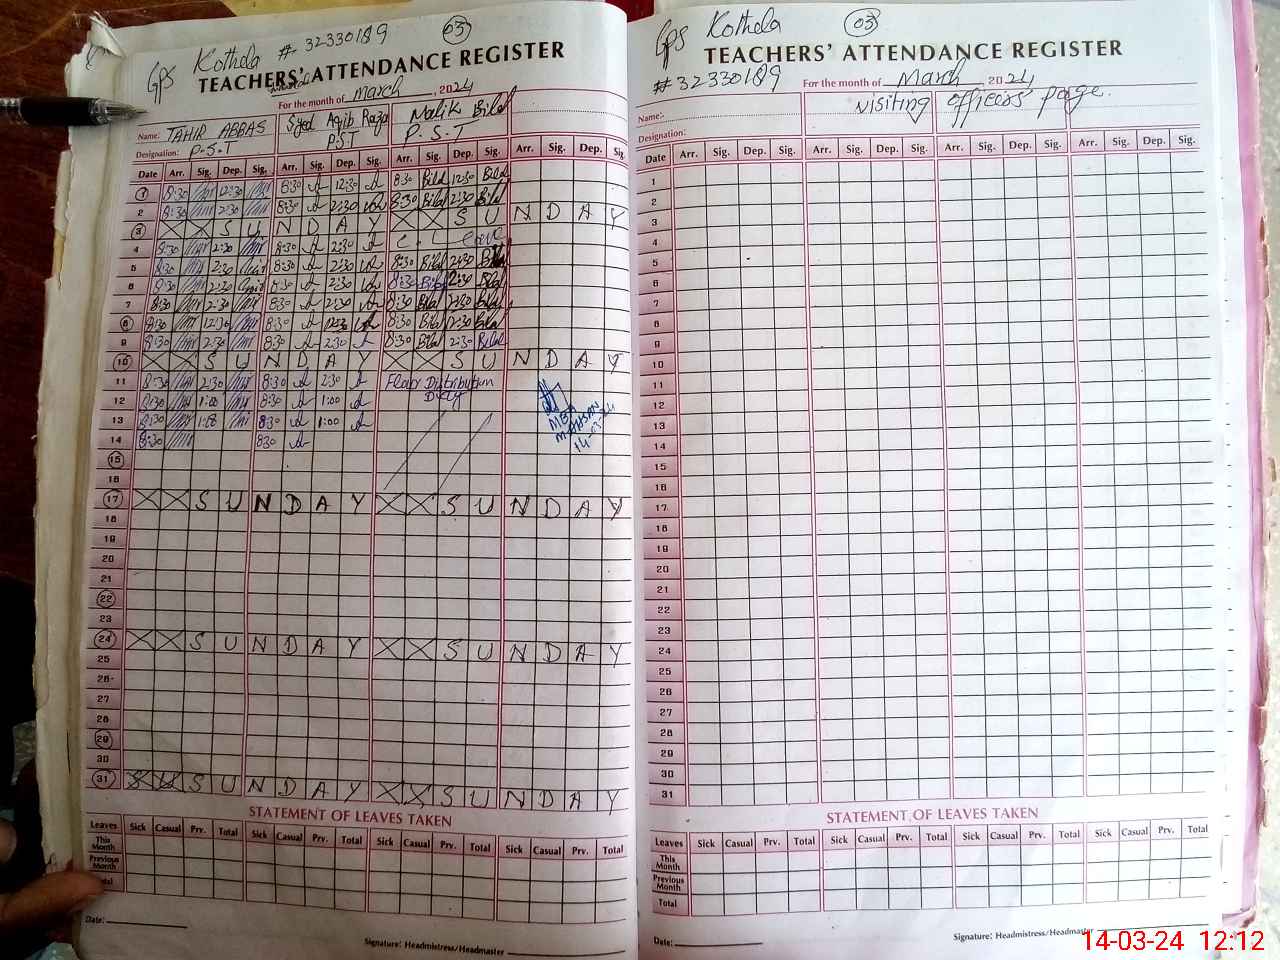 GPS Kothela # 32330189 03
TEACHERS' ATTENDANCE REGISTER
For the month of March, 2024
Name: TAHIR ABBAS Syed Aqib Raza Malik Bilal
Designation: P.S.T P.S.T P.S.T
Date Arr. Sig. Dep. Sig. Arr. Sig. Dep. Sig. Arr. Sig. Dep. Sig. Arr. Sig. Dep. Sig.
1 8:30 12:30 8:30 12:30 8:30 Bilal 12:30 Bilal
2 8:30 2:30 8:30 2:30 8:30 Bilal 2:30 Bilal
3 X X S U N D A Y X X S U N D A Y
4 8:30 2:30 8:30 2:30 C.L leave
5 8:30 2:30 8:30 2:30 8:30 Bilal 2:30 Bilal
6 8:30 2:30 8:30 2:30 8:30 Bilal 2:30 Bilal
7 8:30 2:30 8:30 2:30 8:30 Bilal 2:30 Bilal
8 8:30 12:30 8:30 12:30 8:30 Bilal 12:30 Bilal
9 8:30 2:30 8:30 2:30 8:30 Bilal 2:30 Bilal
10 X X S U N D A Y X X S U N D A Y
11 8:30 2:30 8:30 2:30 Flour Distribution
12 8:30 1:00 8:30 1:00 Duty
13 8:30 1:00 8:30 1:00
14 8:30 8:30
14-03-24
15
16
17 X X S U N D A Y X X S U N D A Y
18
19
20
21
22
23
24 X X S U N D A Y X X S U N D A Y
25
26
27
28
29
30
31 S U N D A Y X X S U N D A Y
STATEMENT OF LEAVES TAKEN
Leaves Sick Casual Prv. Total Sick Casual Prv. Total Sick Casual Prv. Total Sick Casual Prv. Total
This Month
Previous Month
Total
Date:
Signature: Headmistress/Headmaster
GPS Kothela 03
TEACHERS' ATTENDANCE REGISTER
# 32330189 For the month of March 2024
Name:- Visiting officers' page.
Designation:
Date Arr. Sig. Dep. Sig. Arr. Sig. Dep. Sig. Arr. Sig. Dep. Sig. Arr. Sig. Dep. Sig.
1
2
3
4
5
6
7
8
9
10
11
12
13
14
15
16
17
18
19
20
21
22
23
24
25
26
27
28
29
30
31
STATEMENT OF LEAVES TAKEN
Leaves Sick Casual Prv. Total Sick Casual Prv. Total Sick Casual Prv. Total Sick Casual Prv. Total
This Month
Previous Month
Total
Date:
Signature: Headmistress/Headmaster
14-03-24 12:12